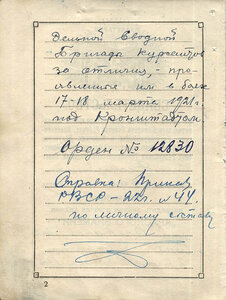 дельной Сводной
Бригады курсантов
за отличия, – про-
явленные им в боях
17-18 марта 1921 г.
под Кронштадтом
Орден № 12830
Справка: Приказ
РВСР – 22 г. № 44.
по личному составу
2